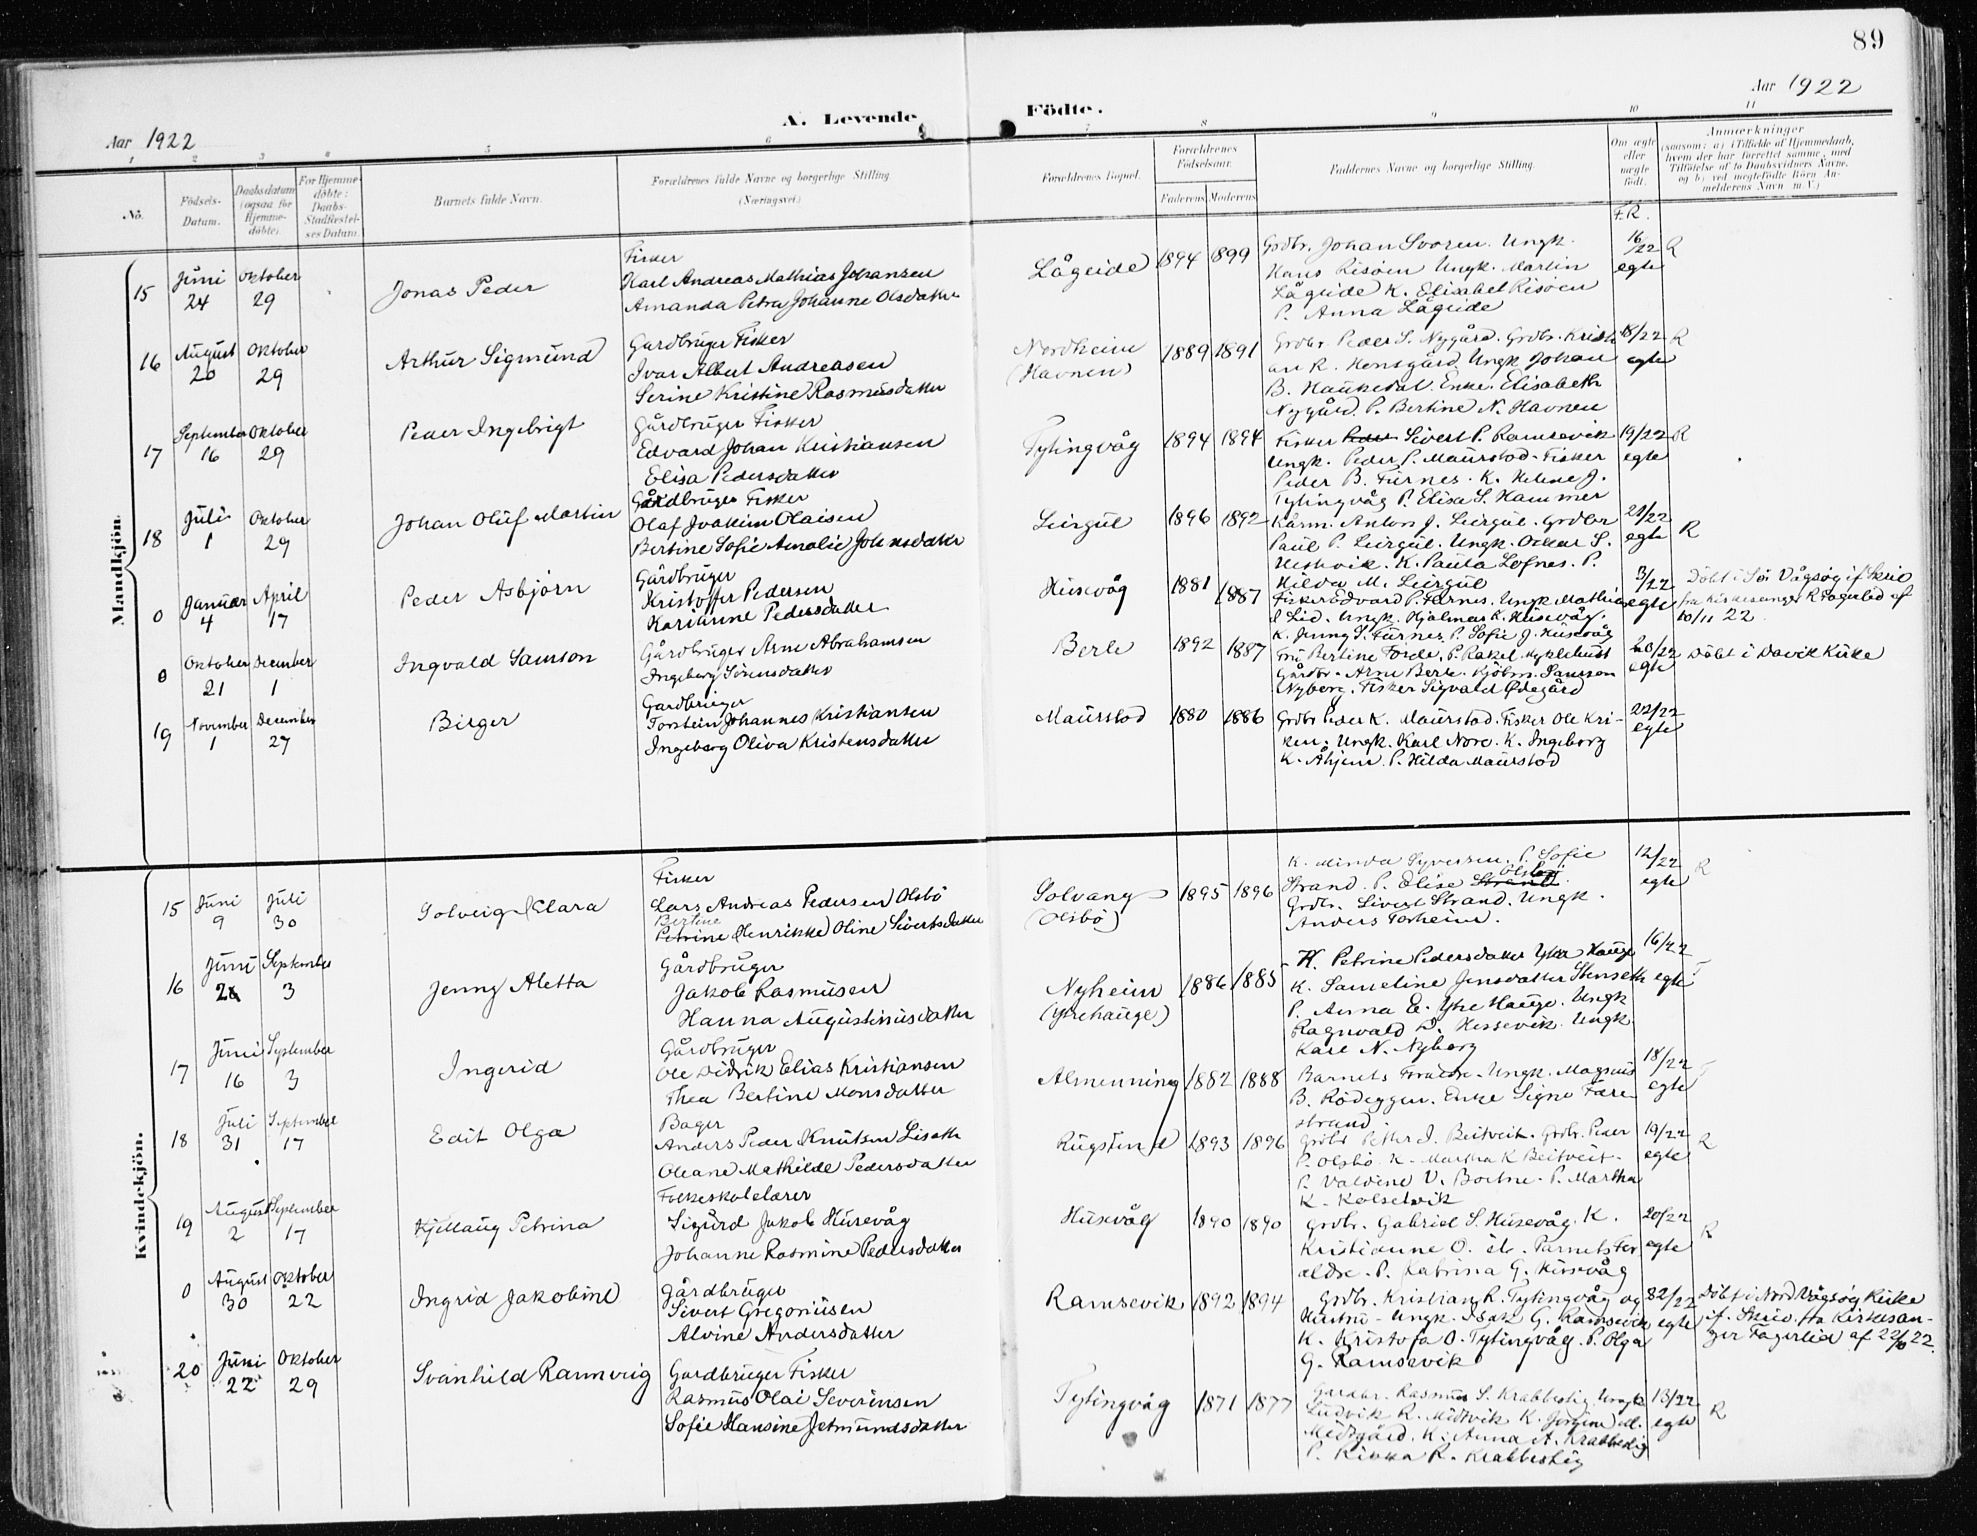 89
Aar 1922
Aar 1922
A. Levende
Födte.
1 2 3 4 5 6 7 8 9 10 11
No.
Födsels-
Datum.
Daabsdatum
(ogsaa for
Hjemme-
döbte).
For Hjemme-
döbte:
Daabs-
Stadfæstel-
ses Datum.
Barnets fulde Navn.
Forældrenes fulde Navne og borgerlige Stilling
(Næringsvei.)
Forældrenes Bopæl.
Forældrenes
Födselsaar.
Faderens Moderens
Faddernes Navne og borgerlige Stilling.
Om ægte
eller
uægte
födt.
Anmærkninger
(saasom: a) i Tilfælde af Hjemmedaab,
hvem der har forrettet samme, med
Tilföielse af to Daabsvidners Navne,
og b) ved uegtefödte Börn An-
melderens Navn m. V.)
F.R.
Mandkjön.
15 Juni 24 Oktober 29 Jonas Peder
Fisker
Karl Andreas Mathias Johansen
Amanda Petra Johanne Olsdatter
Lågeide 1894 1899
Grdbr. Johan Svoren. Ungk.
Hans Risöen Ungk. Martin
Lågeide K. Elisabet Risöen
P. Anna Lågeide
16/22 egte R
16 August 20 Oktober 29 Arthur Sigmund
Gardbruger Fisker
Ivar Albert Andreasen
Serine Kristine Rasmusdatter
Nordheim
(Havnen)
1889 1891
Grdbr. Peder S. Nygård. Grdbr. Kristi
an R. Honsgård Ungk Johan
B. Haukedal. Enke. Elisabeth
Nygård. P. Bertine N. Havnen
18/22 egte R
17 September 16 Oktober 29 Peder Ingebrigt
Gårdbruger Fisker
Edvard Johan Kristiansen
Elisa Pedersdatter
Tytingvåg 1894 1894
Fisker Peder Sivert P. Ramsevik
Ungk. Peder P. Maurstad. Fisker
Peder B. Furnes. K. Helene J.
Tytingvåg P. Elisa S. Hammer
19/22 egte R
18 Juli 1 Oktober 29 Johan Oluf Martin
Gårdbruger Fisker
Olaf Joakim Olaisen
Bertine Sofie Amalie Johnsdatter
Leirgul 1896 1892
Kårm. Anton J. Leirgul. Grdbr
Paul P. Leirgul. Ungk. Oskar S.
K. Paula Lofnes. P.
Hilda M. Leirgul
21/22 egte R
0 Januar 4 April 17 Peder Asbjörn
Gårdbruger
Kristoffer Pedersen
Karianne Pedersdatter
Husevåg 1881 1887
Fisker Edvard P. Furnes. Ungk Mathias
Lid. Ungk. Hjalmar K. Husevåg.
K. Jenny S. Furnes P. Sofie J. Husevåg
3/22 egte
Döbt i Sör Vågsöy if. Skriv
fra kirkesanger R Fagerlid af
10/11 22
0 Oktober 21 December 1 Ingvald Samson
Gårdbruger Arne Abrahamsen
Ingeborg Sörensdatter
Berle 1892 1887
Fru Bertine Förde. P. Rakel Myklebust
Gårdbr. Arne Berle. Kjöbm. Samson
Nyberg. Fisker Sigvald Ödegård
20/22 egte
Döbt i Davik Kirke
19 November 1 December 27 Birger
Gardbruger
Torstein Johannes Kristiansen
Ingeborg Oliva Kristensdatter
Maurstad 1880 1886
Grdbr Peder K. Maurstad. Fisker Ole Kri-
ken. Ungk. Karl Nore. K. Ingeborg
K. Åhjem. P. Hilda Maurstad
22/22 egte
Kvindekjön.
15 Juni 9 Juli 30 Solveig Klara
Fisker
Lars Andreas Pedersen Olsbö
Bertine
Petrine Henrikke Oline Sivertsdatter
Solvang
(Olsbö)
1895 1896
K. Minda Syversen. P. Sofie
Strand. P. Elise Strand Olsbö
Grdbr. Sivert Strand. Ungk.
Anders Torheim.
12/22 egte R
16 Juni September 3 Jenny Aletta
Gårdbruger
Jakob Rasmusen
Hanna Augustinusdatter
Nyheim
(Ytrehauge)
1886 1885
K. Petrine Pedersdatter Ytre Hauge
K. Sameline Jensdatter Stenseth
P. Anna E. Ytre Hauge. Ungk
Ragnvald D. Hessevik. Ungk.
Karl N. Nyborg
16/22 egte T
17 Juni 16 September 3 Ingerid
Gårdbruger
Ole Didrik Elias Kristiansen
Thea Bertine Monsdatter
Almenning 1882 1888
Barnets Forældre. Ungk. Magnus
B. Rödeggen. Enke Signe Fare
strand
18/22 egte T
18 Juli 31 September 17 Edit Olga
Bager
Anders Peder Knutsen Liseth
Oleane Mathilde Pedersdatter
Rugsund 1893 1896
Grdbr Petter J. Beitveit. Grdbr. Peder
P. Olsbö K. Martha K Beitveit.
P. Valdine V. Bortne. P. Martha
K. Kolsetvik
19/22 egte R
19 August 2 September 17 Kjellaug Petrina
Folkeskolelærer
Sigurd Jakob Husevåg
Johanne Rasmine Pedersdatter
Husevåg 1890 1890
Grdbr. Gabriel S. Husevåg. K.
Kristianne O. st. Barnets For
ældre. P. Katrina G. Husevåg
20/22 egte R
0 August 30 Oktober 22 Ingrid Jakobine
Gårdbruger
Sivert Gregoriusen
Alvine Andersdatter
Ramsevik 1892 1894
Grdbr. Kristian R. Tytingvåg og
Hustru. Ungk. Isak G. Ramsevik
K. Kristofa O. Tytingvåg. P. Olga
G. Ramsevik
32/22 egte
Döbt i Nord Vågsöy Kirke
if. Skriv. fra Kirkesan-
ger Fagerlid af 22/10 22.
20 Juni 22 Oktober 29 Svanhild Rannveig
Gardbruger Fisker
Rasmus Olai Severinsen
Sofie Hansine Jetmundsdatter
Tytingvåg 1871 1877
Gardbr. Rasmus S. Krabbestig. Ungk
Ludvik R. Midtvik K. Jörgine M.
Midtgård. K. Anna A. Krabbestig
P. Rikka R. Krabbestig
13/22 egte R